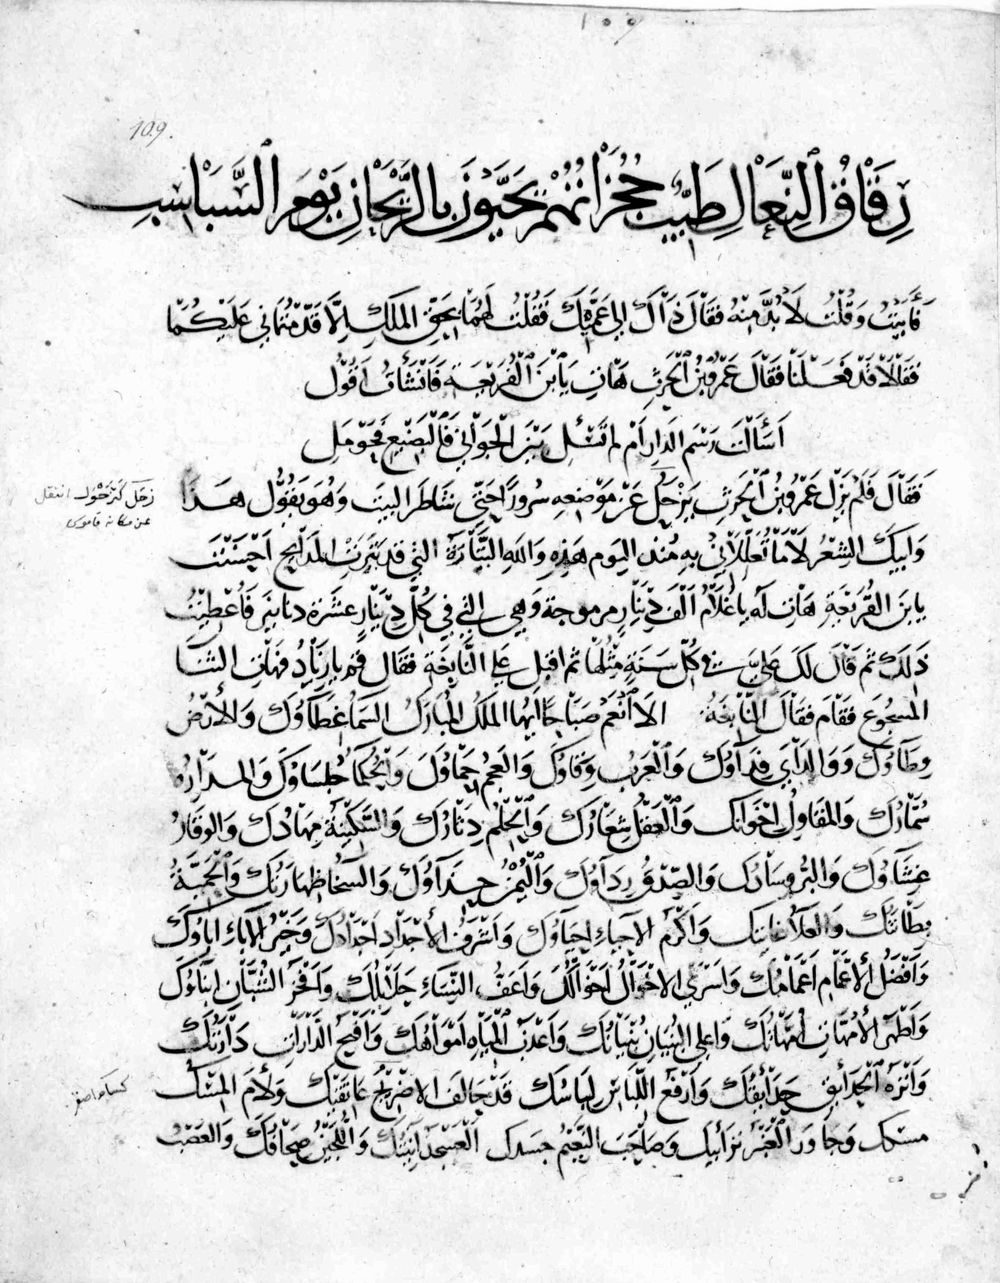 109.
رِقَاقُ ٱلنِّعَالِ طَيِّبٌ حُجُزَاتُهُمْ يُحَيَّوْنَ بِالرَّيْحَانِ يَوْمَ ٱلسَّبَاسِبِ
فَأَبَيْتُ وَقُلْتُ لَا بُدَّ مِنْهُ فَقَالَ ذَاكَ الى عَمَّيْكَ فَقُلْتُ لَهُمَا بِحَقِّ المَلِكِ إِلَّا قَدَّمْتُمَانِي عَلَيْكُمَا
فَقَالَا قَدْ فَعَلْنَا فَقَالَ عَمْرُو بْنُ ٱلْحَرِثِ هَاتِ يَا ٱبْنَ ٱلْفُرَيْعَةِ فَأَنْشَأْتُ اَقُوْلُ
اَسَأَلْتَ رَسْمَ الدَارِ اَمْ لم تَسْئَلِ بَيْنَ الْجَوَابِي فَالْبُضَيْعِ فَحَوْمَلِ
فَقَالَ فَلَمْ يَزَلْ عَمْرُو بْنُ ٱلْحَرِثِ يَزْحَلُ عَنْ مَوْضِعِهِ سُرورًا حَتّى شَاطَرَ البيتَ وَهُوَ يَقُوْلُ هَذَا
زحَل كمنع زحوْلا انتقل
عن مكانه قاموس
وَابيكَ الشِعْرُ لَا مَا تُعَلّلَانِي بِهِ مُنذ اليَوم هَذِهِ وَاللهِ البَتَّارَةُ التي قد بَتَرَتْ المَدَائِحَ اَحْسَنْتَ
يابنَ الفُرَيْعَةِ هَاتِ لَه يا غُلَامُ اَلْفَ دِيْنَارٍ مرموجة وَهِي التي في كُلِّ دِيْنَارٍ عَشَرَة دنانيرَ فَاُعْطِيْتُ
ذَلِكَ ثُمَّ قَالَ لَكَ عَلَيَّ في كُلّ سَنَةٍ مِثْلُهَا ثمّ اقبل على النَّابِغَةِ فَقَال قم يا زِيَادُ فَهَاتِ الثَنَا
المَسجُوعَ فقَام فَقَالَ النَّابِغَةُ الَا اَنْعِمْ صَبَاحًا اَيّها المَلِكُ المُبَارَكُ السَمَآءُ غطَآؤُكَ وَالاَرْضُ
وِطَآؤُكَ وَوَالِدَايَ فِدَآؤُكَ وَٱلْعَرَبُ وِقَاؤُكَ وَالعَجَمُ حِمَاؤُكَ وَٱلْحُكَمَآءُ جُلَسَاؤُكَ وَالمَدَارِهُ
سُمَّارُكَ وَالمَقَاوِلُ اِخْوَانُكَ وَٱلْعَقْلُ شِعَارُكَ وَٱلْحِلْمُ دِثَارُكَ وَالسَّكِيْنَةُ مِهَادُكَ وَالوَقَارُ
غِشَآؤُكَ وَالبِرُّ وِسَادُكَ وَالصِّدْقُ رِدَآؤُكَ وَٱلْيُمْنُ حِذَآؤُكَ وَالسَّخَاءُ ظِهَارَتُكَ وَٱلْحَمِيَّةُ
بِطَانَتُكَ وَالعَلَآءُ غَايَتُكَ وَاَكْرَمُ الاَحيَاءِ اَحْيَآؤُكَ وَاَشْرَفُ الاَجْدَادِ اَجْدَادُكَ وَخَيْرُ الآبَاءِ ابَاؤُكَ
وَاَفْضَلُ الاَعْمَام اَعْمَامُكَ وَاَسْرَى الاَخْوَالِ اَخْوَالُكَ وَاَعَفُّ النِّسَاءِ حَلَائِلُكَ وَاَفْخَرُ الشُبَّانِ اَبْنَاؤُكَ
وَاَطْهَرُ الاُمَّهَاتِ اُمَّهَاتُكَ وَاَعْلَى البُنيَانِ بُنْيَانُكَ وَاَعْذَبُ المِيَاهِ اَمْوَاهُكَ وَاَفْيَحُ الدَّارَاتِ دَارَتُكَ
وَاَنْزَهُ ٱلْحَدَائِقِ حَدَائِقُكَ وَاَرْفَعُ اللِّبَاسِ لِبَاسُكَ قَدْ حَالَفَ الاِضْرِيْجُ عَاتِقَكَ وَلَاءَمَ المِسْكُ
كساء اصفر
مَسْكَكَ وَجَاوَرَ العَنْبَرُ تَرَائِبَكَ وَصَاحَبَ النَّعِيْمُ جَسَدَكَ العَسْجَدُ آنِيَتُكَ وَاللُّجَيْنُ صِحَافُكَ وَالعَصْبُ